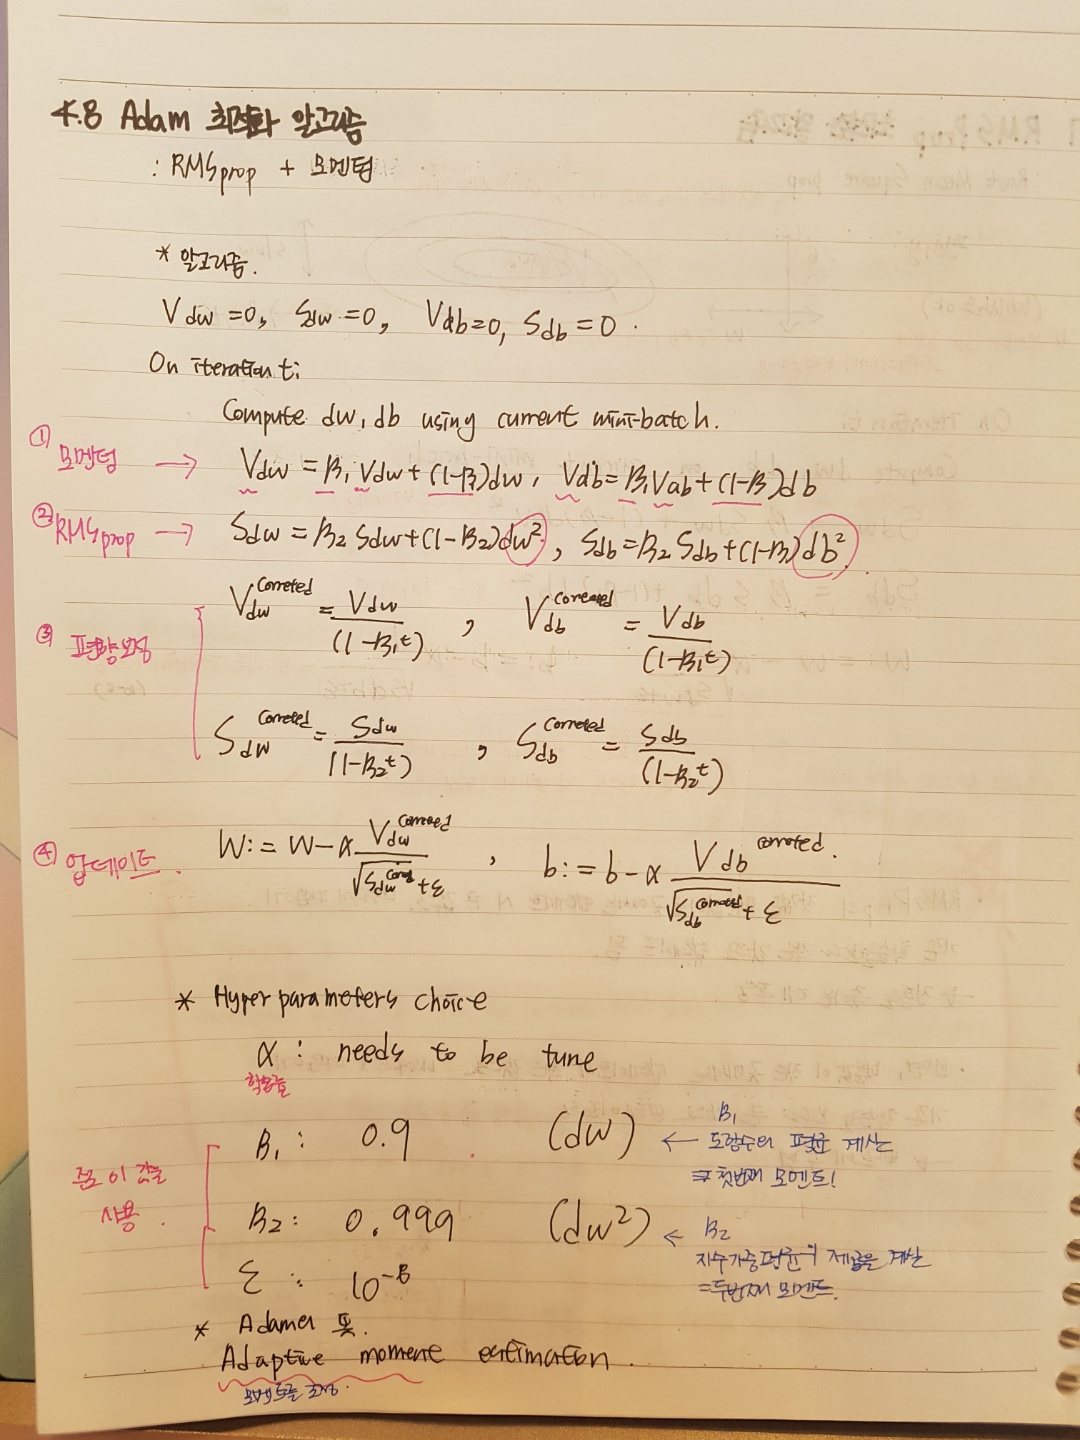 4.8 Adam 최적화 알고리즘
: RMSprop + 모멘텀
* 알고리즘.
Vdw =0, Sdw =0, Vdb=0, Sdb =0.
On iteration t:
Compute dw, db using current mini-batch.
① 모멘텀 → Vdw = B₁ Vdw + (1-B₁)dw, Vdb= B₁Vdb + (1-B₁)db
② RMSprop → Sdw = B₂ Sdw + (1-B₂)dw², Sdb = B₂ Sdb + (1-B)db².
③ 편향보정 Vdw^Correted = Vdw / (1-B₁^t), Vdb^Correted = Vdb / (1-B₁^t)
Sdw^Correted = Sdw / (1-B₂^t), Sdb^Correted = Sdb / (1-B₂^t)
④ 업데이트. W := W-α Vdw^Correted / √Sdw^Correted + ε, b := b-α Vdb^correted / √Sdb^correted + ε
* Hyper parameters choice
α : needs to be tune
학습률
B₁ : 0.9 (dw) ← B₁ 도함수의 평균 계산
⇒ 첫번째 모멘트!
주로 이 값을 사용.
B₂ : 0.999 (dw²) ← B₂
지수가중평균의 제곱을 계산
⇒두번째 모멘트.
ε : 10⁻⁸
* Adam의 뜻.
Adaptive moment estimation.